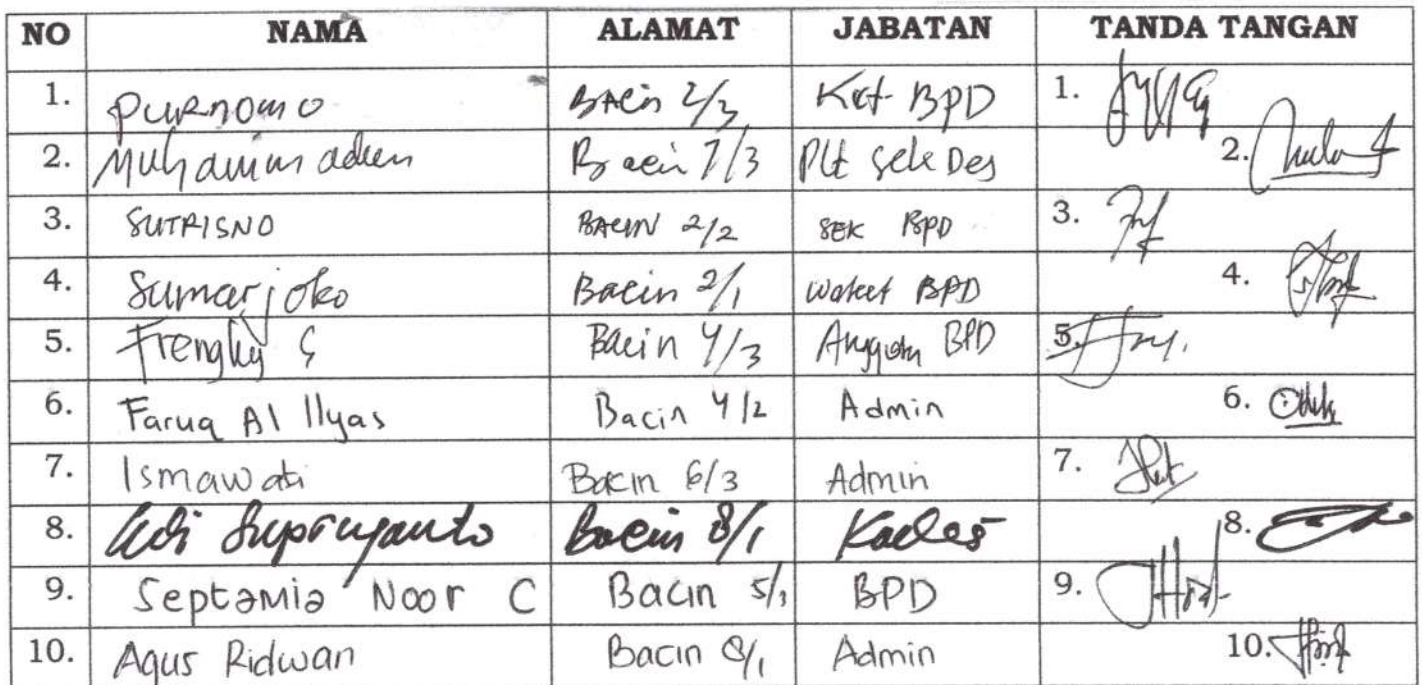 NO NAMA ALAMAT JABATAN TANDA TANGAN
1. PURNOMO BACin 2/3 Ket BPD 1.
2. Muhaimin Bacin 7/3 Plt SekDes 2.
3. SUTRISNO BACIN 2/2 SEK BPD 3.
4. Sumarjoko Bacin 2/1 Waket BPD 4.
5. Frengky S Bacin 4/3 Anggota BPD 5.
6. Faruq Al Ilyas Bacin 4/2 Admin 6.
7. Ismawati Bacin 6/3 Admin 7.
8. Adi Supriyanto Bacin 8/1 Kades 8.
9. Septamia Noor C Bacin 5/1 BPD 9.
10. Agus Ridwan Bacin 8/1 Admin 10.